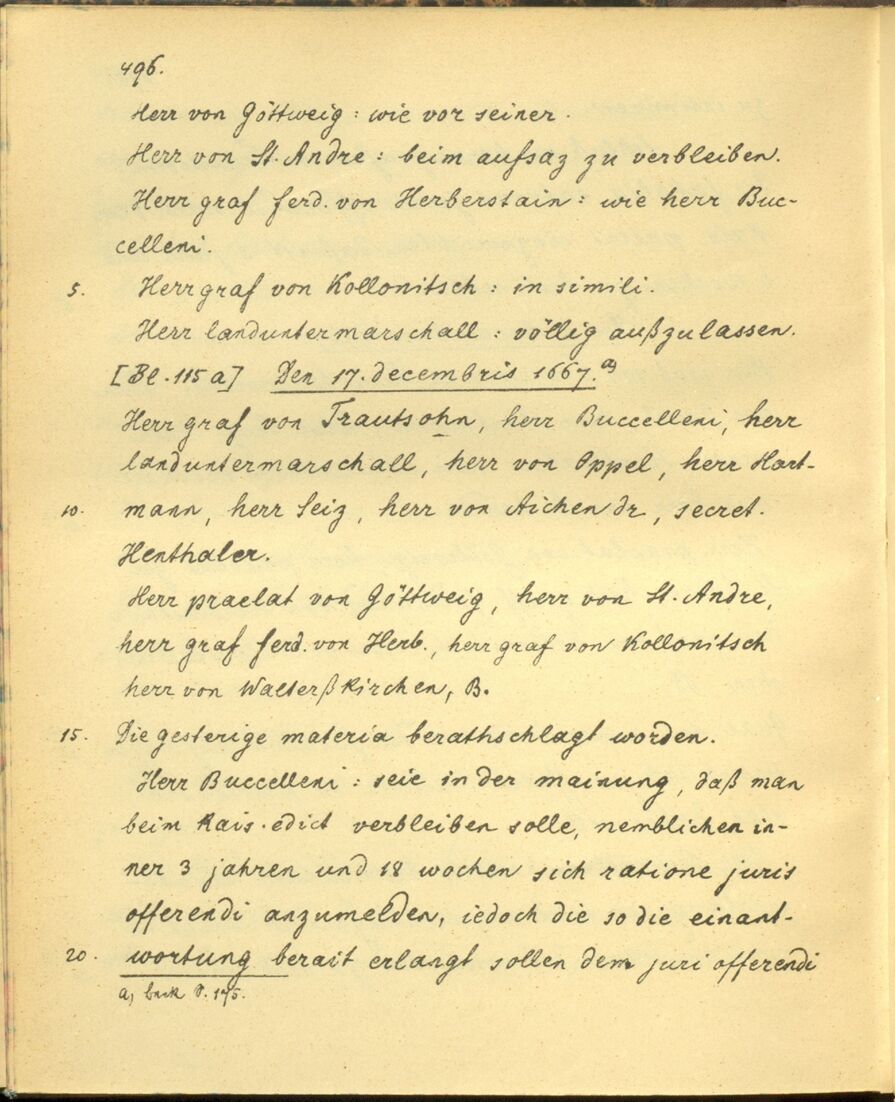 496.
Herr von Göttweig : wie vor seiner.
Herr von St. Andre : beim aufsaz zu verbleiben.
Herr graf ferd. von Herberstain : wie herr Buc-
celleni.
5. Herr graf von Kollonitsch : in simili.
Herr landuntermarschall : völlig außzulassen.
[Bl. 115 a] Den 17. decembris 1667. a)
Herr graf von Trautsohn, herr Buccelleni, herr
landuntermarschall, herr von Oppel, herr Hart-
10. mann, herr Seiz, herr von Aichen dr, secret.
Henthaler.
Herr praelat von Göttweig, herr von St. Andre,
herr graf ferd. von Herb., herr graf von Kollonitsch
herr von Walterßkirchen, B.
15. Die gesterige materia berathschlagt worden.
Herr Buccelleni : seie in der mainung, daß man
beim Kais. edict verbleiben solle, nemblichen in-
ner 3 jahren und 18 wochen sich ratione juris
offerendi anzumelden, iedoch die so die einant-
20. wortung berait erlangt sollen dem juri offerendi
a) S. 175.